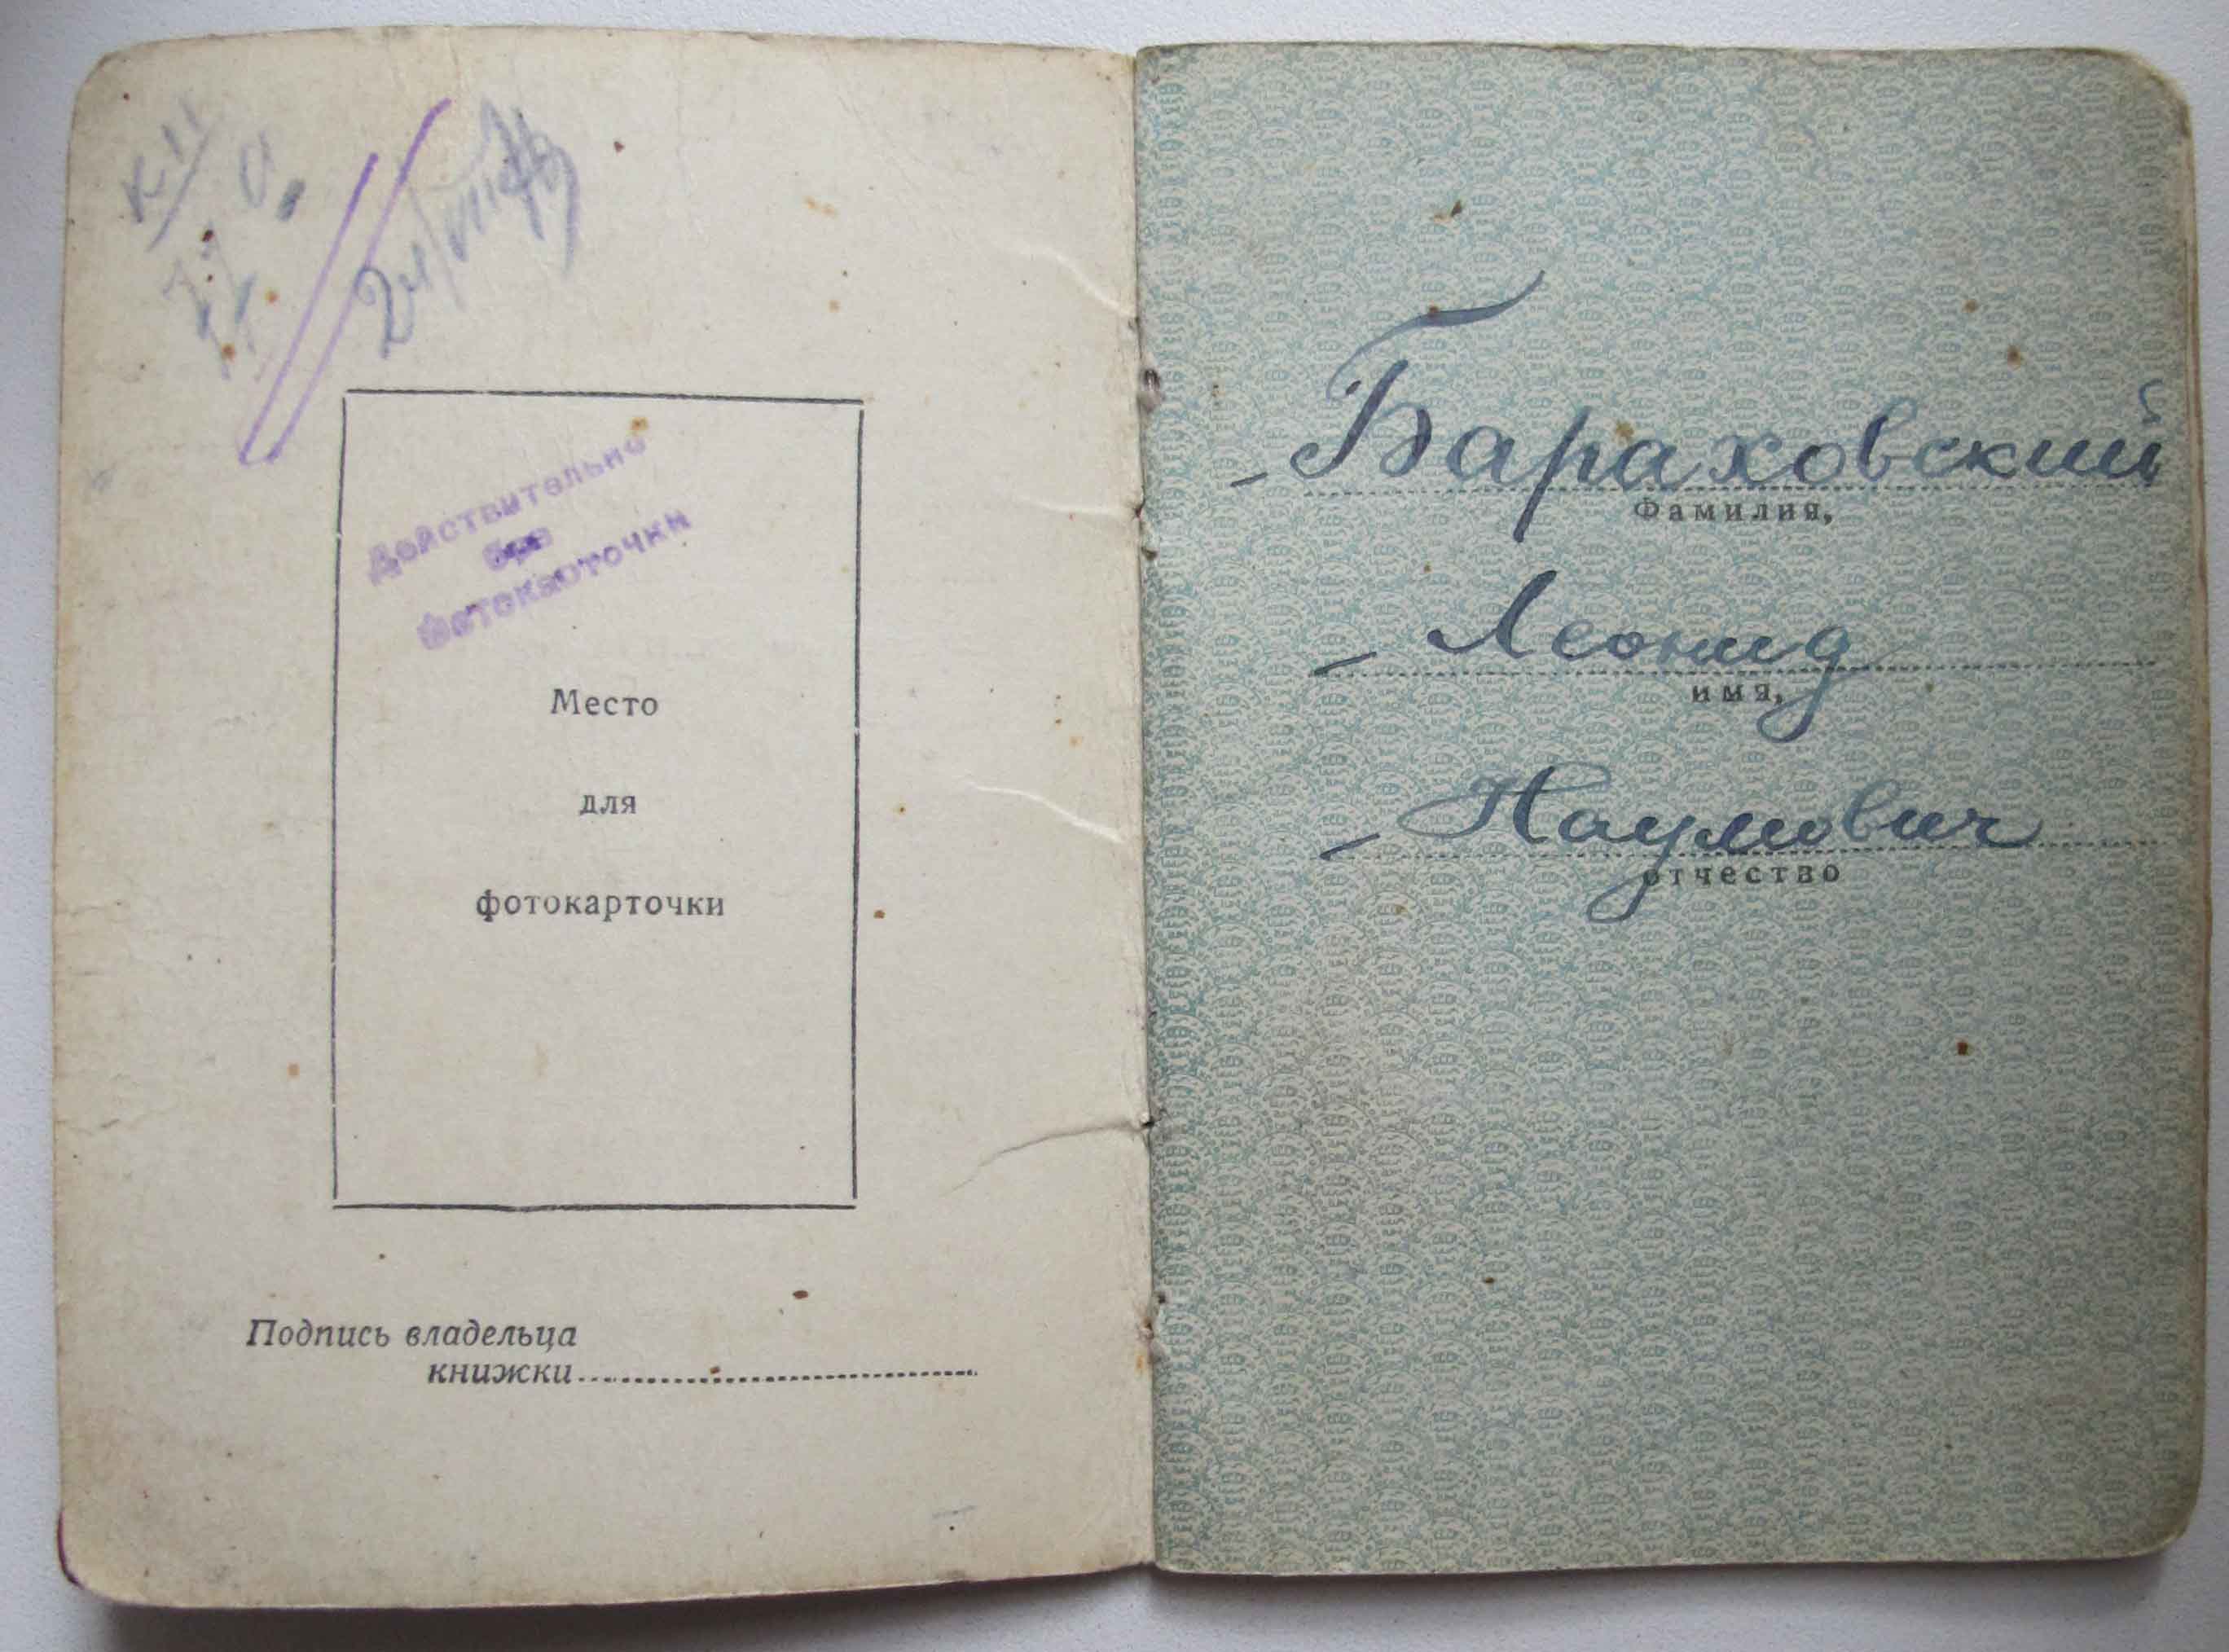 Действительно
без
фотокарточки
Место
для
фотокарточки
Подпись владельца
книжки
Бараховский
Фамилия,
Леонид
имя,
Наумович
отчество